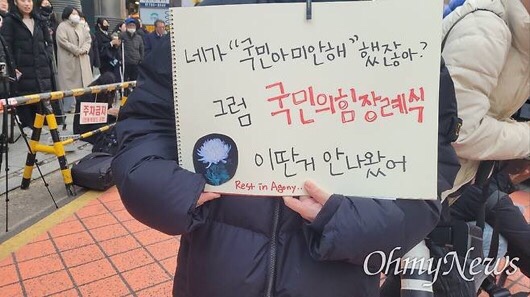 네가 "국민아미안해" 했잖아?
그럼 국민의힘장례식
이딴거 안나왔어
Rest in Agony..
주차금지
OhmyNews